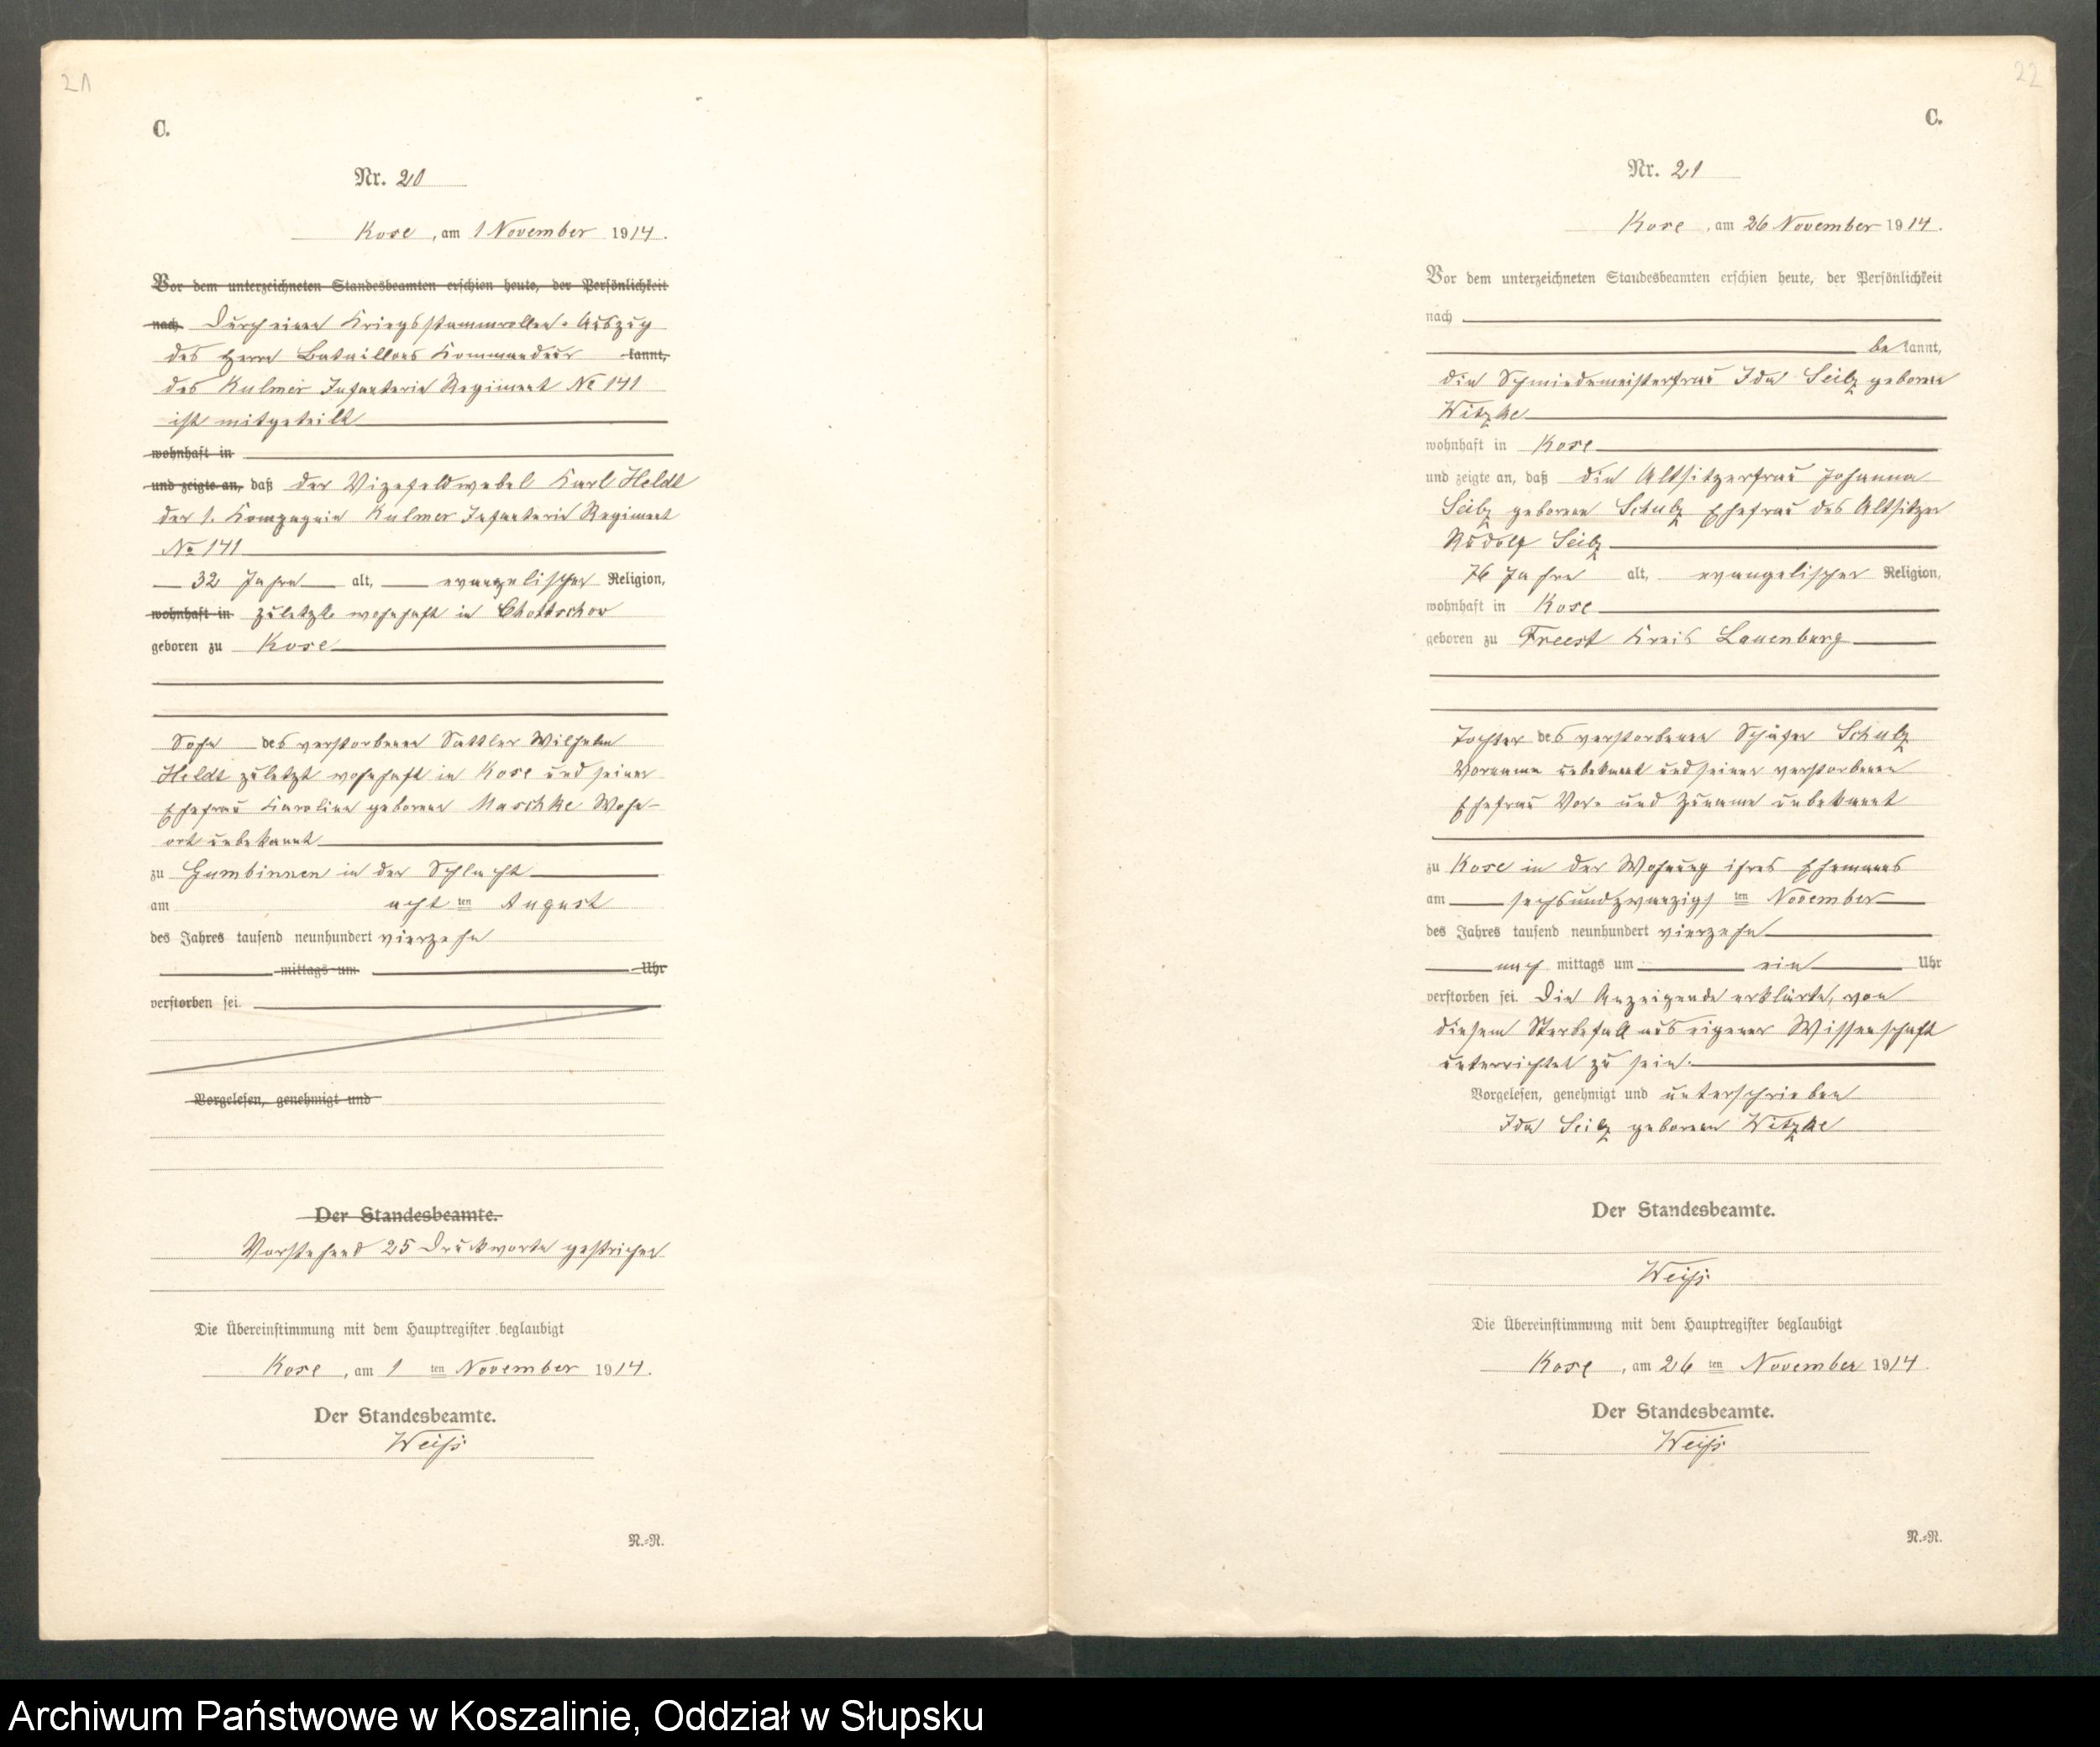 21
C.
Nr. 20
Kose, am 1 November 1914.
Vor dem unterzeichneten Standesbeamten erschien heute, der Persönlichkeit
nach Durch einen Kriegsstammrollen-Auszug
des Herrn Bataillons Kommandeur kannt,
des Kulmer Infanterie Regiment No 141
ist mitgeteilt
wohnhaft in
und zeigte an, daß der Vizefeldwebel Karl Heldt
der 1. Kompagnie Kulmer Infanterie Regiment
No 141
32 Jahre alt, evangelischer Religion,
wohnhaft in zuletzt wohnhaft in Chottschow
geboren zu Kose
Sohn des verstorbenen Sattler Wilhelm
Heldt zuletzt wohnhaft in Kose und seiner
Ehefrau Karoline geborene Maschke Wohn-
ort unbekannt
zu Gumbinnen in der Schlacht
am acht ten August
des Jahres tausend neunhundert vierzehn
mittags um Uhr
verstorben sei.
Vorgelesen, genehmigt und
Der Standesbeamte.
Vorstehend 25 Druckworte gestrichen
Die Übereinstimmung mit dem Hauptregister beglaubigt
Kose, am 1 ten November 1914.
Der Standesbeamte.
Weiß
N.-R.
22
C.
Nr. 21
Kose, am 26 November 1914.
Vor dem unterzeichneten Standesbeamten erschien heute, der Persönlichkeit
nach
be kannt,
die Schmiedemeisterfrau Ida Seils geborene
Witzke
wohnhaft in Kose
und zeigte an, daß die Altsitzerfrau Johanna
Seils geborene Schulz Ehefrau des Altsitzer
Rudolf Seils
76 Jahre alt, evangelischer Religion,
wohnhaft in Kose
geboren zu Freest Kreis Lauenburg
Tochter des verstorbenen Schäfer Schulz
Vorname unbekannt und seiner verstorbenen
Ehefrau Vor- und Zuname unbekannt
zu Kose in der Wohnung ihres Ehemannes
am sechsundzwanzigs ten November
des Jahres tausend neunhundert vierzehn
nach mittags um ein Uhr
verstorben sei. Die Anzeigende erklärte, von
diesem Sterbefall aus eigener Wissenschaft
unterrichtet zu sein.
Vorgelesen, genehmigt und unterschrieben
Ida Seils geborene Witzke
Der Standesbeamte.
Weiß
Die Übereinstimmung mit dem Hauptregister beglaubigt
Kose, am 26 ten November 1914.
Der Standesbeamte.
Weiß
N.-R.
Archiwum Państwowe w Koszalinie, Oddział w Słupsku